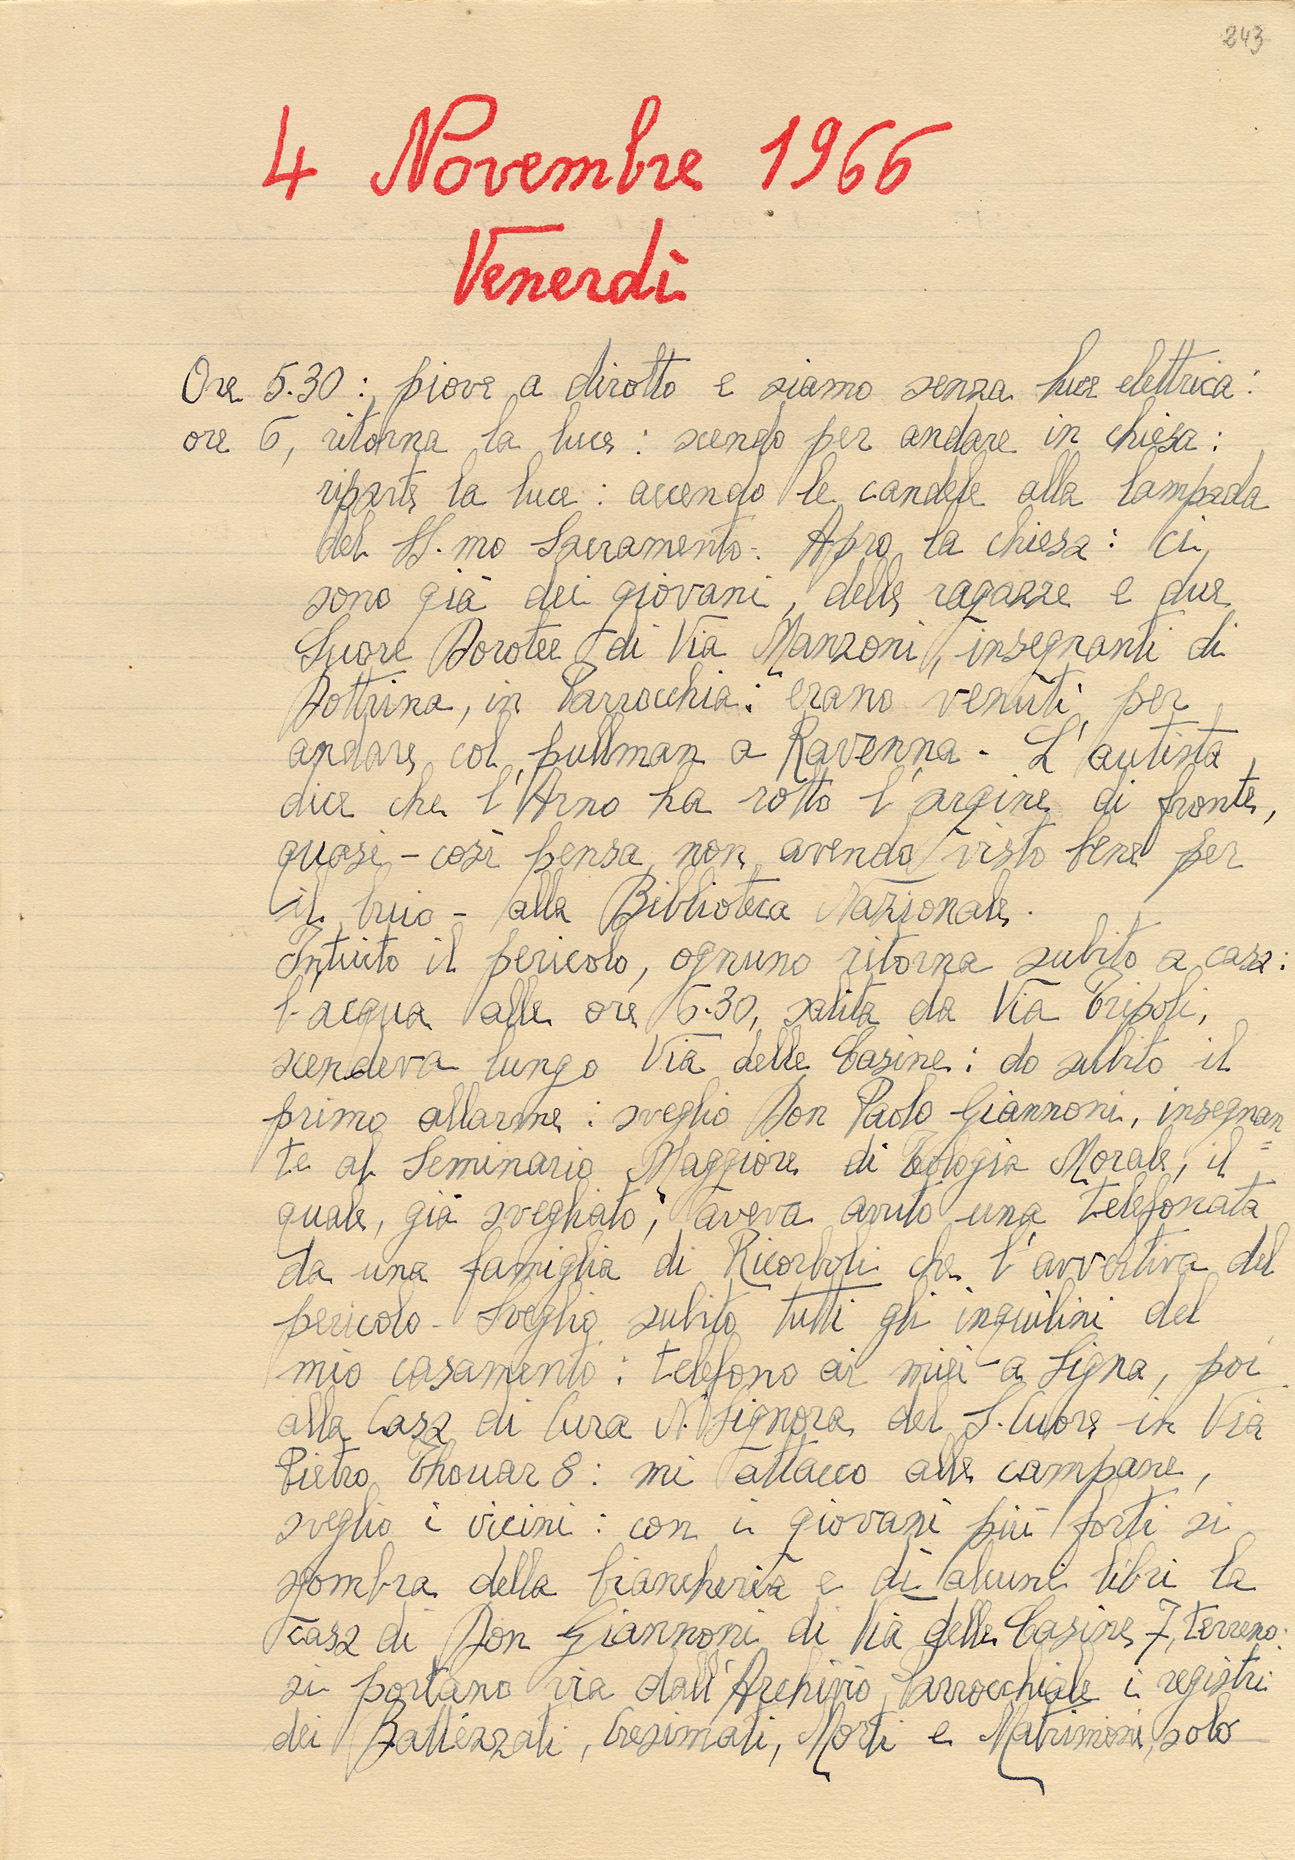 243
4 Novembre 1966
Venerdì
Ore 5.30: piove a dirotto e siamo senza luce elettrica:
ore 6, ritorna la luce: scendo per andare in chiesa:
riparte la luce: accendo le candele alla lampada
del SS.mo Sacramento. Apro la chiesa: ci
sono già dei giovani, delle ragazze e due
Suore Dorotee di Via Manzoni, insegnanti di
Dottrina, in Parrocchia: erano venuti per
andare col pullman a Ravenna. L'autista
dice che l'Arno ha rotto l'argine di fronte,
quasi - così pensa non avendo visto bene per
il buio - alla Biblioteca Nazionale.
Intuito il pericolo, ognuno ritorna subito a casa:
l'acqua alle ore 6.30, salita da Via Tripoli,
scendeva lungo Via delle Casine: do subito il
primo allarme: sveglio Don Paolo Giannoni, insegnan=
te al Seminario Maggiore di Teologia Morale, il
quale, già svegliato, aveva avuto una telefonata
da una famiglia di Ricorboli che l'avvertiva del
pericolo. Sveglio subito tutti gli inquilini del
mio casamento: telefono ai miei a Signa, poi
alla Casa di Cura N. Signora del S. Cuore in Via
Pietro Thouar 8: mi attacco alle campane,
sveglio i vicini: con i giovani più forti si
sgombra della biancheria e di alcuni libri la
casa di Don Giannoni di Via delle Casine 7, terreno:
si portano via dall'Archivio Parrocchiale i registri
dei Battezzati, Cresimati, Morti e Matrimoni, solo